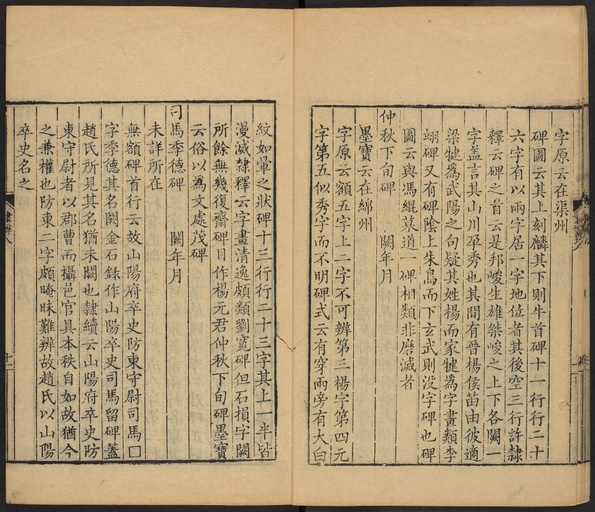 字原云在渠州
碑圖云其上刻麟其下則牛首碑十一行行二十
六字有以兩字居一字地位者其後空三行許隸
釋云碑之首云是邦峻生雄桀峻之上下各闕一
字蓋言其山川卒秀也其間有晉楊侯苗由彼適
梁犍為武陽之句疑其姓楊而家犍為字畫類李
翊碑又有碑陰上朱鳥而下玄武則沒字碑也碑
圖云與馮緄墓道一碑相類非磨滅者
仲秋下旬碑 闕年月
墨寶云在綿州
字原云額五字上二字不可辨第三楊字第四元
字第五似秀字而不明碑式云有穿兩旁有大白
紋如暈之狀碑十三行行二十三字其上一半皆
漫滅隸釋云字畫清逸頗類劉寬碑但石損字闕
所餘無幾復齋碑目作楊元君仲秋下旬碑墨寶
云俗以為文處茂碑
司馬季德碑 闕年月
未詳所在
無額碑首行云故山陽府卒史防東守尉司馬囗
字季德其名闕金石錄作山陽卒史司馬留碑蓋
趙氏所見其名猶未闕也隸續云山陽府卒史防
東守尉者以郡曹而攝邑官具本秩自如故猶今
之兼權也防東二字頗晻昧難辨故趙氏以山陽
卒史名之